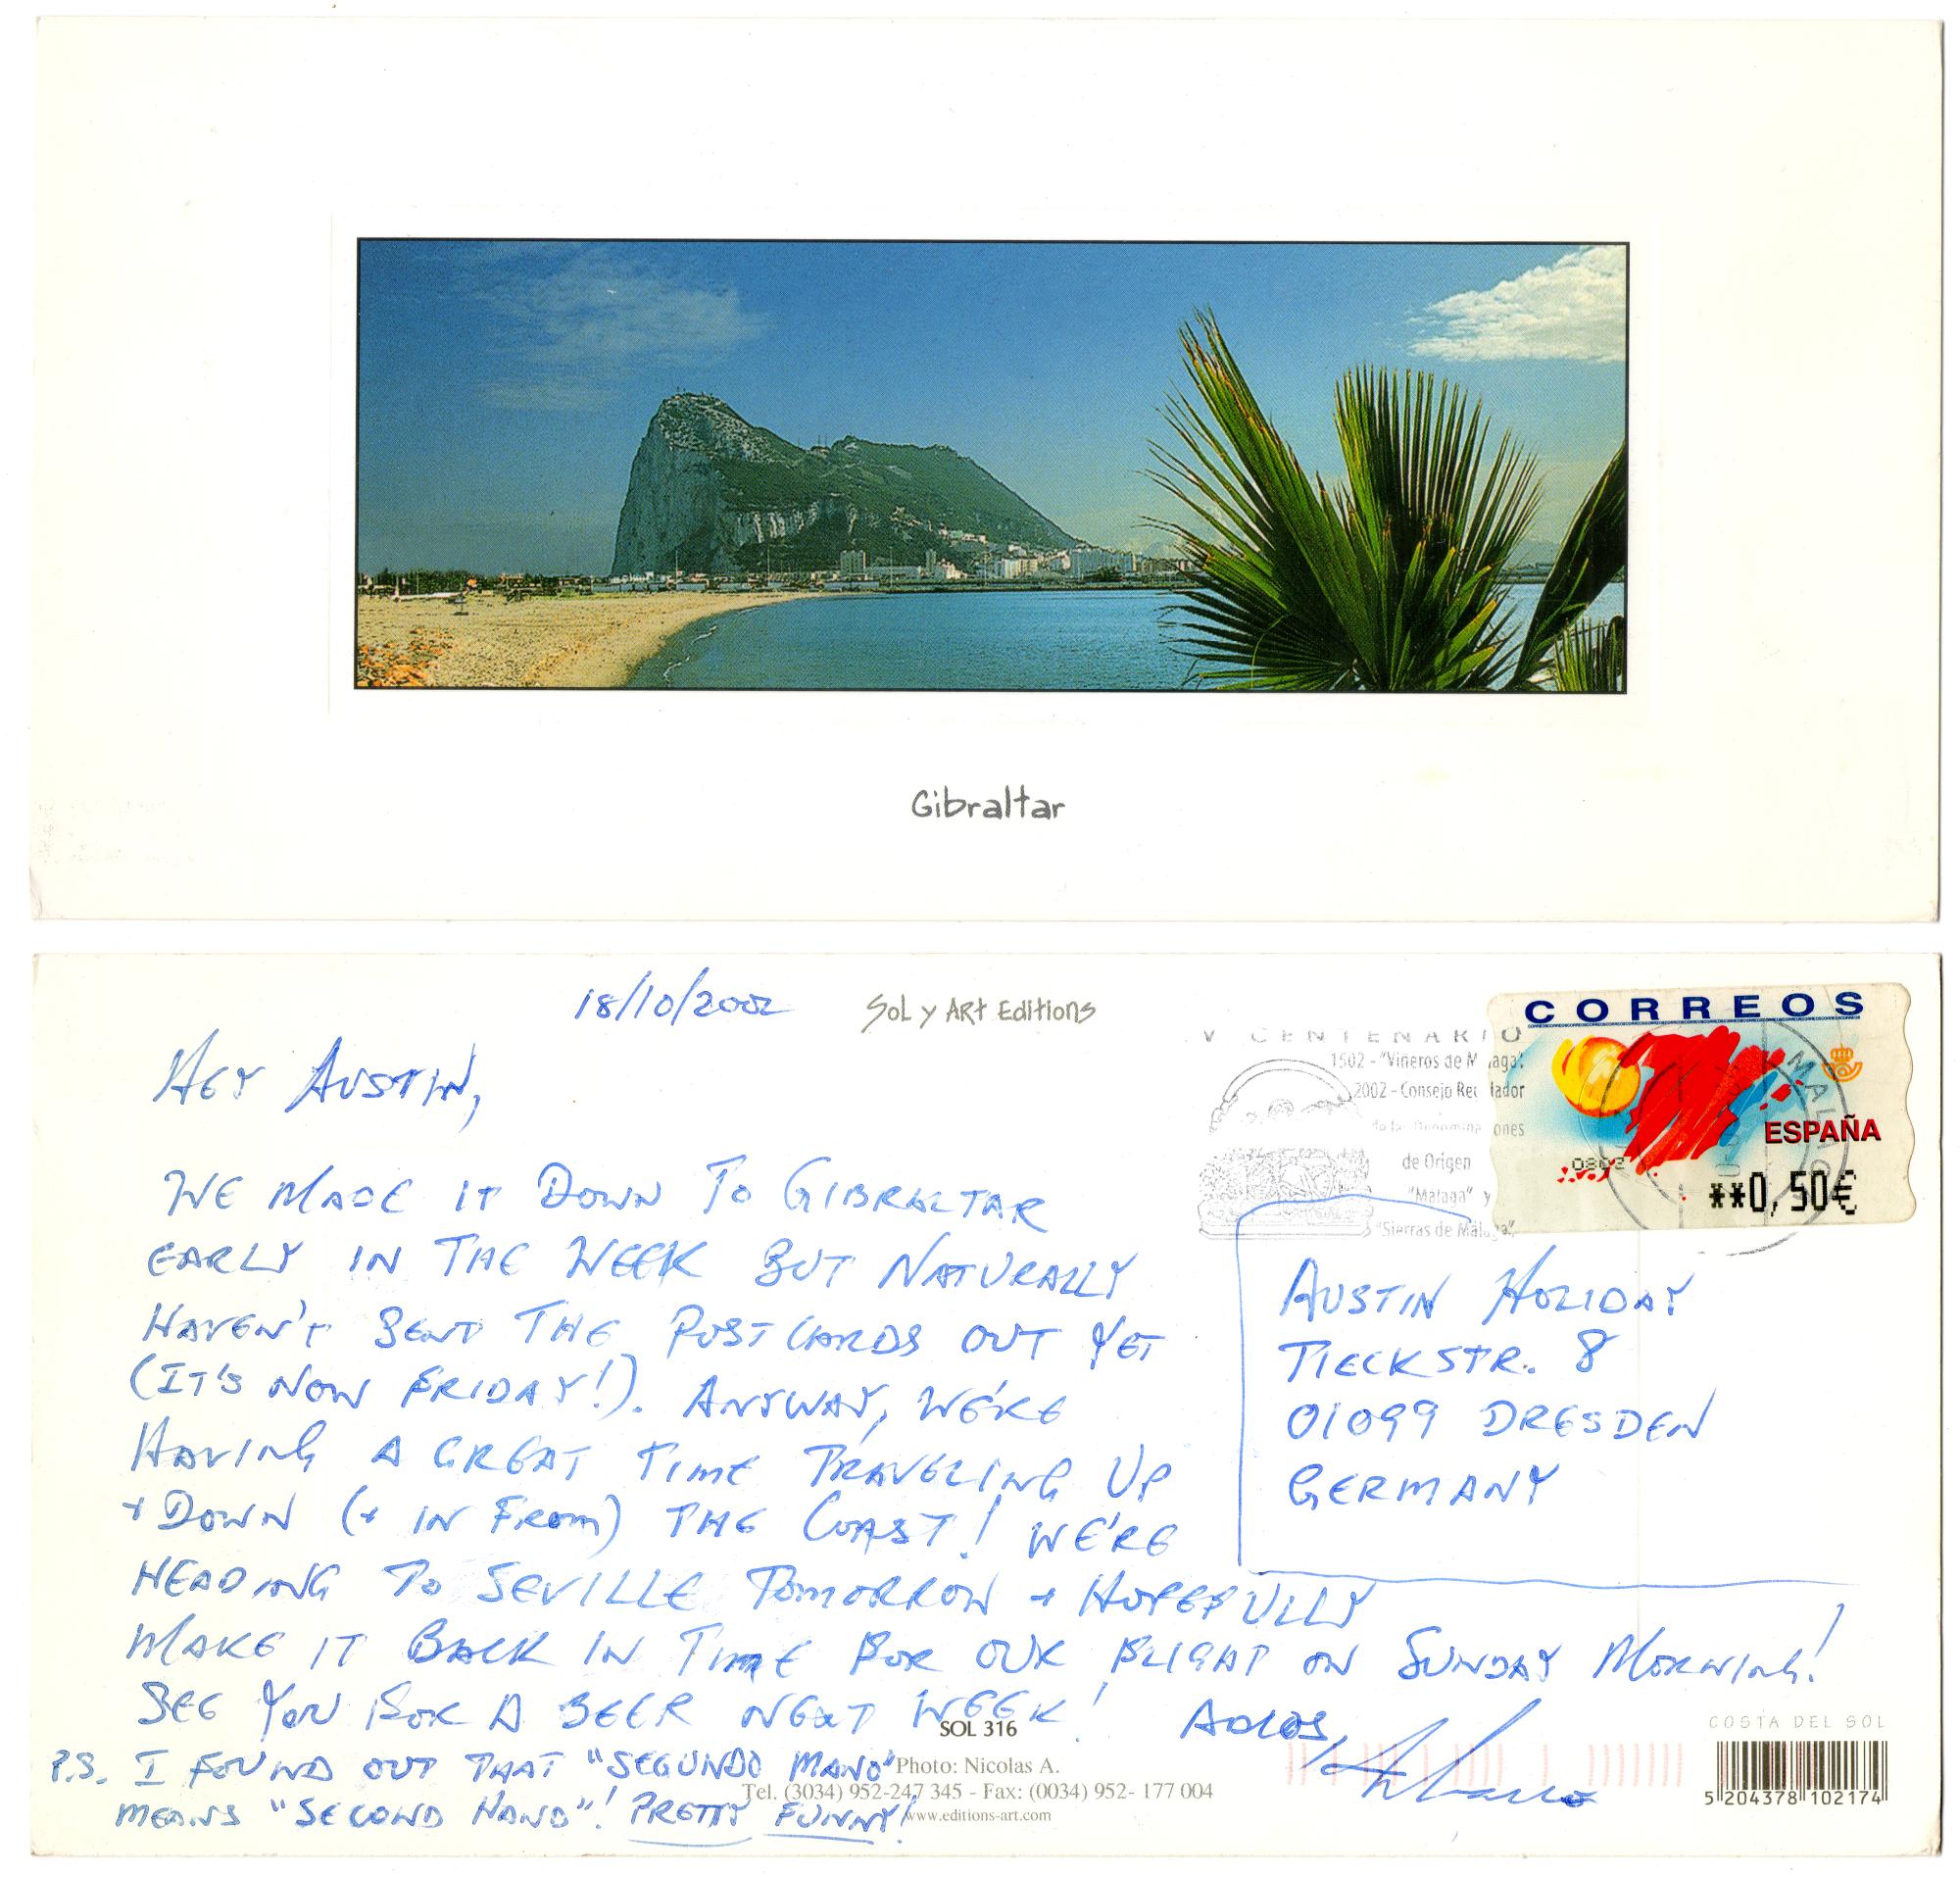 Gibraltar
18/10/2002
Sol y Art Editions
HEY AUSTIN,
WE MADE IT DOWN TO GIBRALTAR
EARLY IN THE WEEK BUT NATURALLY
HAVEN'T SENT THE POSTCARDS OUT YET
(IT'S NOW FRIDAY!). ANYWAY, WE'RE
HAVING A GREAT TIME TRAVELING UP
+ DOWN (+ IN FROM) THE COAST! WE'RE
HEADING TO SEVILLE TOMORROW + HOPEFULLY
MAKE IT BACK IN TIME FOR OUR FLIGHT ON SUNDAY MORNING!
SEE YOU FOR A BEER NEXT WEEK! ADIOS,
P.S. I FOUND OUT THAT "SEGUNDO MANO"
MEANS "SECOND HAND"! PRETTY FUNNY!
V CENTENARIO
1502 - "Viñeros de Málaga".
2002 - Consejo Regulador
de las Denominaciones
de Origen
"Málaga" y
"Sierras de Málaga".
CORREOS
MALAGA
ESPAÑA
**0,50€
AUSTIN HOLIDAY
TIECKSTR. 8
01099 DRESDEN
GERMANY
SOL 316
Photo: Nicolas A.
Tel. (3034) 952-247 345 - Fax: (0034) 952- 177 004
www.editions-art.com
COSTA DEL SOL
5 204378 102174